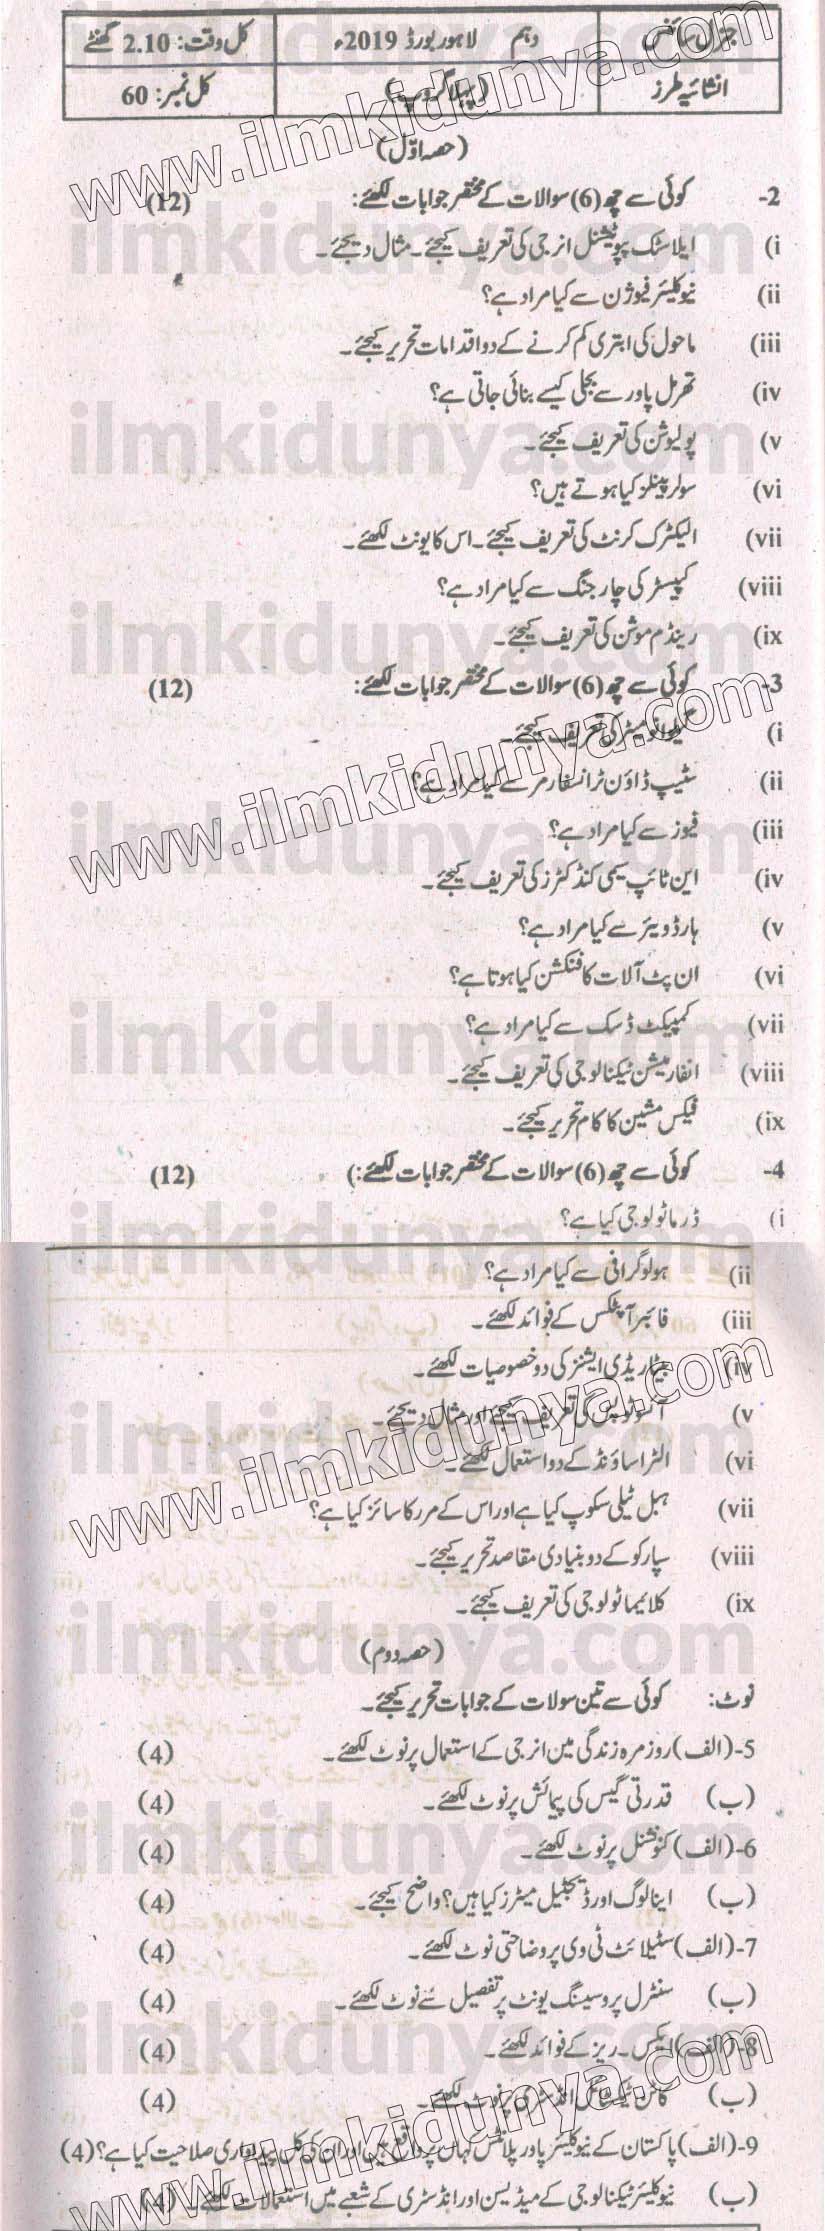 جنرل سائنس دہم لاہور بورڈ 2019ء کل وقت: 2.10 گھنٹے
انشائیہ طرز (پہلا گروپ) کل نمبر: 60
(حصہ اوّل)
2- کوئی سے چھ (6) سوالات کے مختصر جوابات لکھئے: (12)
(i ایلاسٹک پوٹینشل انرجی کی تعریف کیجئے۔ مثال دیجئے۔
(ii نیوکلیئر فیوژن سے کیا مراد ہے؟
(iii ماحول کی ابتری کم کرنے کے دو اقدامات تحریر کیجئے۔
(iv تھرمل پاور سے بجلی کیسے بنائی جاتی ہے؟
(v پولیوشن کی تعریف کیجئے۔
(vi سولر پینلز کیا ہوتے ہیں؟
(vii الیکٹرک کرنٹ کی تعریف کیجئے۔ اس کا یونٹ لکھئے۔
(viii کپیسٹر کی چارجنگ سے کیا مراد ہے؟
(ix رینڈم موشن کی تعریف کیجئے۔
3- کوئی سے چھ (6) سوالات کے مختصر جوابات لکھئے: (12)
(i گیلوانومیٹر کی تعریف کیجئے۔
(ii سٹیپ ڈاؤن ٹرانسفارمر سے کیا مراد ہے؟
(iii فیوز سے کیا مراد ہے؟
(iv این ٹائپ سیمی کنڈکٹرز کی تعریف کیجئے۔
(v ہارڈ ویئر سے کیا مراد ہے؟
(vi ان پٹ آلات کا فنکشن کیا ہوتا ہے؟
(vii کمپیکٹ ڈسک سے کیا مراد ہے؟
(viii انفارمیشن ٹیکنالوجی کی تعریف کیجئے۔
(ix فیکس مشین کا کام تحریر کیجئے۔
4- کوئی سے چھ (6) سوالات کے مختصر جوابات لکھئے:) (12)
(i ڈرماٹولوجی کیا ہے؟
(ii ہولوگرافی سے کیا مراد ہے؟
(iii فائبر آپٹکس کے فوائد لکھئے۔
(iv بیٹا ریڈی ایشنز کی دو خصوصیات لکھئے۔
(v آئسوٹوپس کی تعریف کیجئے اور مثال دیجئے۔
(vi الٹراساؤنڈ کے دو استعمال لکھئے۔
(vii ہبل ٹیلی سکوپ کیا ہے اور اس کے مرر کا سائز کیا ہے؟
(viii سپارکو کے دو بنیادی مقاصد تحریر کیجئے۔
(ix کلائیماٹولوجی کی تعریف کیجئے۔
(حصہ دوم)
نوٹ: کوئی سے تین سولات کے جوابات تحریر کیجئے۔
5-(الف) روزمرہ زندگی مین انرجی کے استعمال پر نوٹ لکھئے۔ (4)
(ب) قدرتی گیس کی پیمائش پر نوٹ لکھئے۔ (4)
6-(الف) کنونشنل پر نوٹ لکھئے۔ (4)
(ب) اینالوگ اور ڈیجیٹل میٹرز کیا ہیں؟ واضح کیجئے۔ (4)
7-(الف) سٹیلائٹ ٹی وی پر وضاحتی نوٹ لکھئے۔ (4)
(ب) سنٹرل پروسیسنگ یونٹ پر تفصیل سے نوٹ لکھئے۔ (4)
8-(الف) ایکس۔ ریز کے فوائد لکھئے۔ (4)
(ب) کاٹن ٹیکسٹائل انڈسٹری پر نوٹ لکھئے۔ (4)
9-(الف) پاکستان کے نیوکلیئر پاور پلانٹس کہاں پر واقع ہیں اور ان کی کل پیداواری صلاحیت کیا ہے؟ (4)
(ب) نیوکلیئر ٹیکنالوجی کے میڈیسن اور انڈسٹری کے شعبے میں استعمالات لکھئے۔ (4)
www.ilmkidunya.com
ilmkidunya.com
ilmkidunya.com
ilmkidunya.com
www.ilmkidunya.com
ilmkidunya.com
ilmkidunya.com
ilmkidunya.com
www.ilmkidunya.com
ilmkidunya.com
ilmkidunya.com
ilmkidunya.com
ilmkidunya.com
www.ilmkidunya.com